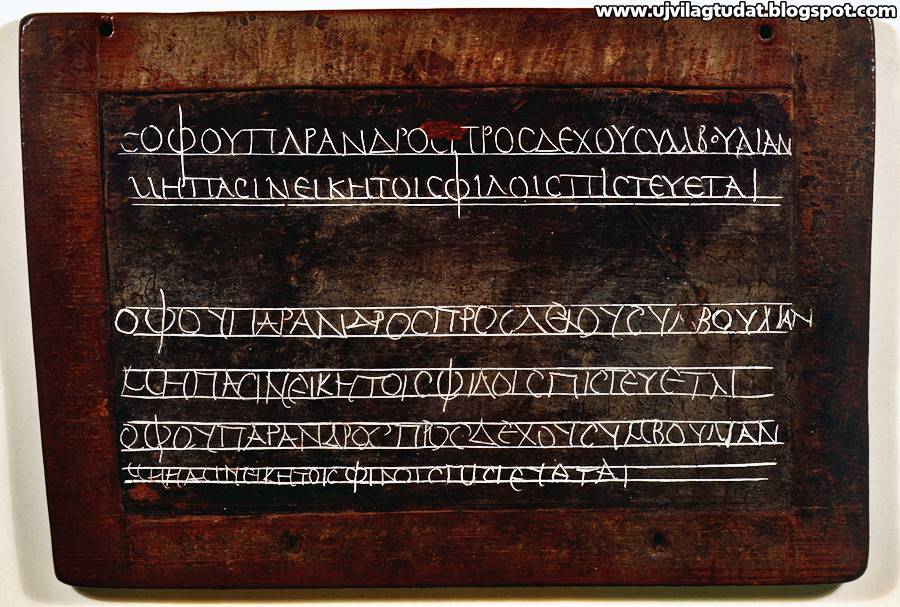 www.ujvilagtudat.blogspot.com
ϹΟΦΟΥΠΑΡΑΝΔΡΟϹΠΡΟϹΔΕΧΟΥϹΥΜΒΟΥΛΙΑΝ
ΜΗΠΑϹΙΝΕΙΚΗΤΟΙϹΦΙΛΟΙϹΠΙϹΤΕΥΕΤΑΙ
ΟΦΟΥΠΑΡΑΝΔΡΟϹΠΡΟϹΔΕΧΟΥϹΥΜΒΟΥΛΙΑΝ
ΜΗΠΑϹΙΝΕΙΚΗΤΟΙϹΦΙΛΟΙϹΠΙϹΤΕΥΕΤΑΙ
ΟΦΟΥΠΑΡΑΝΔΡΟϹΠΡΟϹΔΕΧΟΥϹΥΜΒΟΥΛΙΑΝ